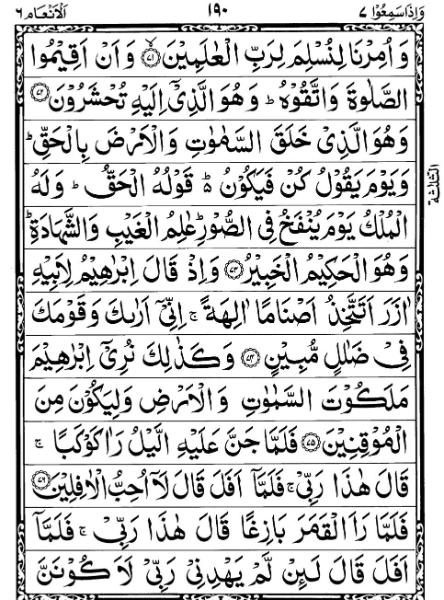 وَاِذَاسَمِعُوْا ٧ ١٩٠ اَلْاَنْعَام ٦
وَ اُمِرْنَا لِنُسْلِمَ لِرَبِّ الْعٰلَمِيْنَ ۙ﴿٧١﴾ وَ اَنْ اَقِيْمُوا
الصَّلٰوةَ وَاتَّقُوْهُ ؕ وَهُوَ الَّذِيْۤ اِلَيْهِ تُحْشَرُوْنَ ﴿٧٢﴾
وَهُوَ الَّذِيْ خَلَقَ السَّمٰوٰتِ وَالْاَرْضَ بِالْحَقِّ ؕ
وَيَوْمَ يَقُوْلُ كُنْ فَيَكُوْنُ ۬ؕ قَوْلُهُ الْحَقُّ ؕ وَلَهُ
الْمُلْكُ يَوْمَ يُنْفَخُ فِي الصُّوْرِ ؕ عٰلِمُ الْغَيْبِ وَالشَّهَادَةِ ؕ
وَهُوَ الْحَكِيْمُ الْخَبِيْرُ ﴿٧٣﴾ وَاِذْ قَالَ اِبْرٰهِيْمُ لِاَبِيْهِ
اٰزَرَ اَتَتَّخِذُ اَصْنَامًا اٰلِهَةً ۚ اِنِّيْۤ اَرٰىكَ وَ قَوْمَكَ
فِيْ ضَلٰلٍ مُّبِيْنٍ ﴿٧٤﴾ وَكَذٰلِكَ نُرِيْۤ اِبْرٰهِيْمَ
مَلَكُوْتَ السَّمٰوٰتِ وَ الْاَرْضِ وَلِيَكُوْنَ مِنَ
الْمُوْقِنِيْنَ ﴿٧٥﴾ فَلَمَّا جَنَّ عَلَيْهِ الَّيْلُ رَاٰ كَوْكَبًا ۚ
قَالَ هٰذَا رَبِّيْ ۚ فَلَمَّاۤ اَفَلَ قَالَ لَاۤ اُحِبُّ الْاٰفِلِيْنَ ﴿٧٦﴾
فَلَمَّا رَاَ الْقَمَرَ بَازِغًا قَالَ هٰذَا رَبِّيْ ۚ فَلَمَّاۤ
اَفَلَ قَالَ لَئِنْ لَّمْ يَهْدِنِيْ رَبِّيْ لَاَكُوْنَنَّ
الثلثة